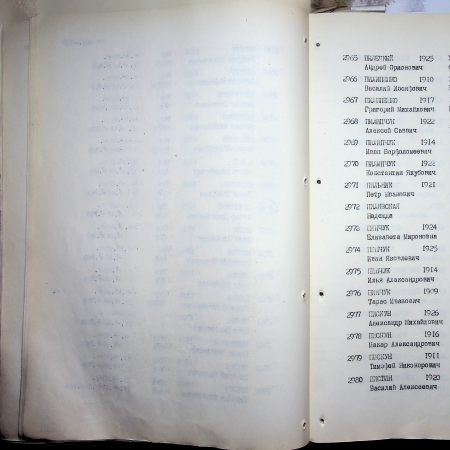 2965 ПИЛЕЦКИЙ 1925
Андрей Орионович
2966 ПИЛИПЕНКО 1910
Василий Иосифович
2967 ПИЛИПЕНКО 1917
Григорий Михайлович
2968 ПИЛИПЧУК 1922
Алексей Саввич
2969 ПИЛИПЧУК 1914
Иван Варфоломеевич
2970 ПИЛИПЧУК 1922
Константин Якубович
2971 ПИЛЬНИК 1921
Петр Иванович
2972
Надежда
2973 ПИНЧУК 1924
Елизавета Мироновна
2974 ПИНЧУК 1925
Иван Яковлевич
2975 ПИНЧУК 1914
Илья Александрович
2976 ПИНЧУК 1909
Тарас Иванович
2977 ПИСКУН 1926
Александр Михайлович
2978 ПИСКУН 1916
Макар Александрович
2979 ПИСКУН 1911
Тимофей Никонорович
2980 1920
Василий Алексеевич